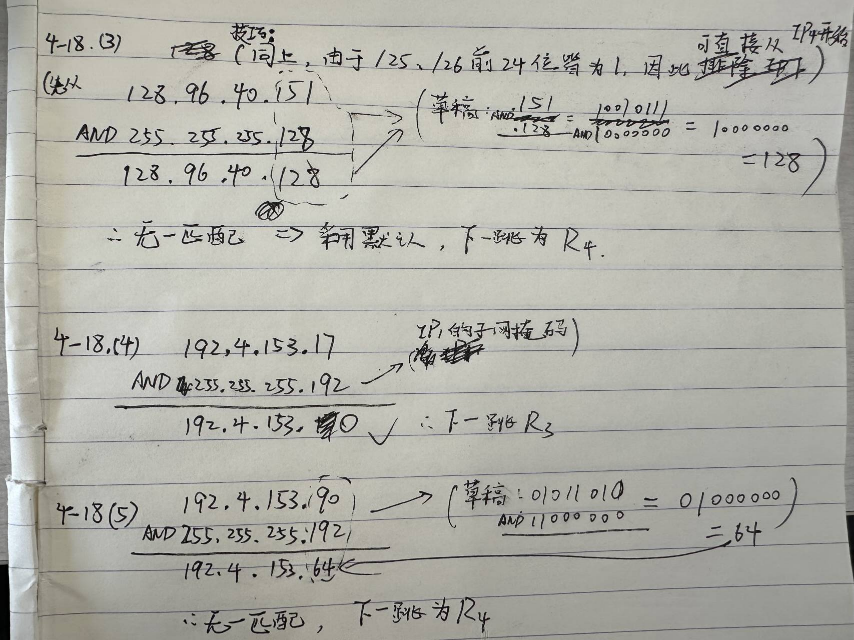 4-18.(3) 技巧: (同上, 由于 /25、/26 前24位皆为1, 因此可直接从IP4开始)
(先从
128.96.40.151
AND 255.255.255.128
128.96.40.128
(草稿: .151 = 10010111
AND .128 AND 10000000 = 10000000
=128)
∴ 无一匹配 => 采用默认, 下一跳为 R4.
4-18.(4) 192.4.153.17
AND 255.255.255.192 → IP1的子网掩码)
192.4.153.0 ✓ ∴ 下一跳R3
4-18(5) 192.4.153.90
AND 255.255.255.192
192.4.153.64
(草稿: 01011010
AND 11000000 = 01000000)
=64
∴ 无一匹配, 下一跳为R4